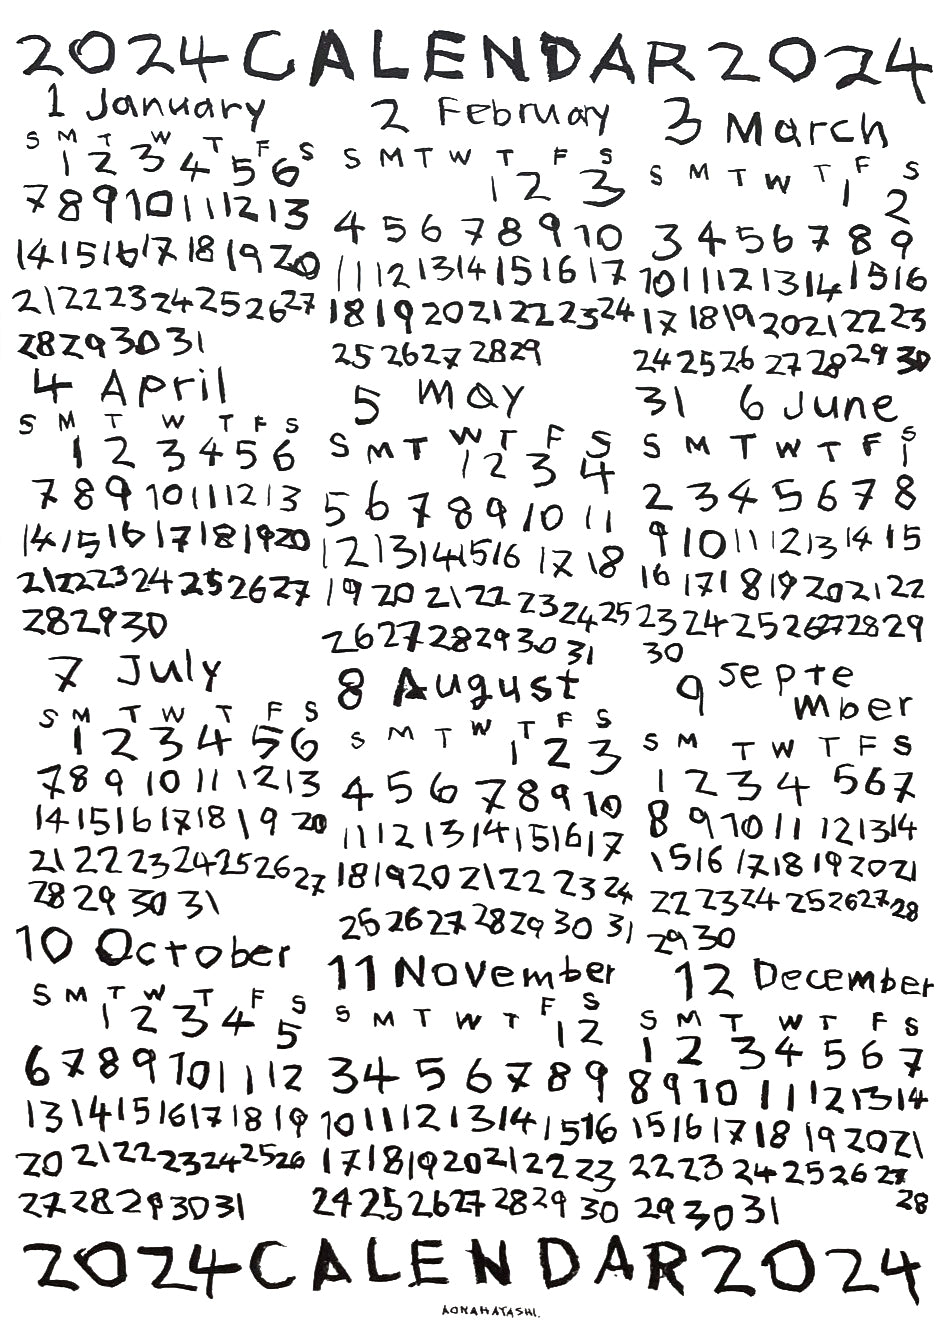 2024 CALENDAR 2024
1 January
S M T W T F S
1 2 3 4 5 6
7 8 9 10 11 12 13
14 15 16 17 18 19 20
21 22 23 24 25 26 27
28 29 30 31
2 February
S M T W T F S
1 2 3
4 5 6 7 8 9 10
11 12 13 14 15 16 17
18 19 20 21 22 23 24
25 26 27 28 29
3 March
S M T W T F S
1 2
3 4 5 6 7 8 9
10 11 12 13 14 15 16
17 18 19 20 21 22 23
24 25 26 27 28 29 30
31
4 April
S M T W T F S
1 2 3 4 5 6
7 8 9 10 11 12 13
14 15 16 17 18 19 20
21 22 23 24 25 26 27
28 29 30
5 May
S M T W T F S
1 2 3 4
5 6 7 8 9 10 11
12 13 14 15 16 17 18
19 20 21 22 23 24 25
26 27 28 29 30 31
6 June
S M T W T F S
1
2 3 4 5 6 7 8
9 10 11 12 13 14 15
16 17 18 19 20 21 22
23 24 25 26 27 28 29
30
7 July
S M T W T F S
1 2 3 4 5 6
7 8 9 10 11 12 13
14 15 16 17 18 19 20
21 22 23 24 25 26 27
28 29 30 31
8 August
S M T W T F S
1 2 3
4 5 6 7 8 9 10
11 12 13 14 15 16 17
18 19 20 21 22 23 24
25 26 27 28 29 30 31
9 Septe
mber
S M T W T F S
1 2 3 4 5 6 7
8 9 10 11 12 13 14
15 16 17 18 19 20 21
22 23 24 25 26 27 28
29 30
10 October
S M T W T F S
1 2 3 4 5
6 7 8 9 10 11 12
13 14 15 16 17 18 19
20 21 22 23 24 25 26
27 28 29 30 31
11 November
S M T W T F S
1 2
3 4 5 6 7 8 9
10 11 12 13 14 15 16
17 18 19 20 21 22 23
24 25 26 27 28 29 30
12 December
S M T W T F S
1 2 3 4 5 6 7
8 9 10 11 12 13 14
15 16 17 18 19 20 21
22 23 24 25 26 27
28
29 30 31
2024 CALENDAR 2024